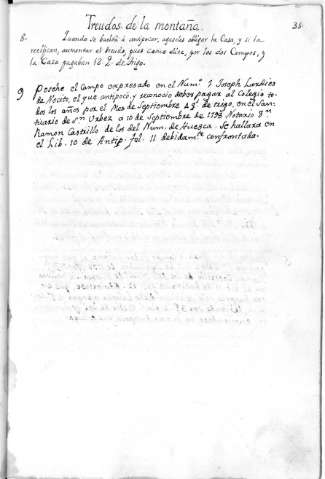 Treudos de la montaña.
35.
8. Quando se buelba à antipocar, aquella exige la Casa, y si la
recificase, aumentar el treudo, pues como dice, por los dos Campos, y
la Casa pagaban 12 q. de trigo.
9 Poshe el Campo expresado en el Num.º 7 Joseph
de Nocito, el que antipocó, y reconoció deber pagar al Colegio to-
dos los años por el Mes de Septiembre 4 q.s de trigo, en el San-
tuario de S.n Urbez a 10 de Septiembre de Notario D.n
Ramon Castrillo de los del Num. de Huesca. Se hallara en
el Lib. 10 de Antip. fol. 11 debidam.te confrontada.